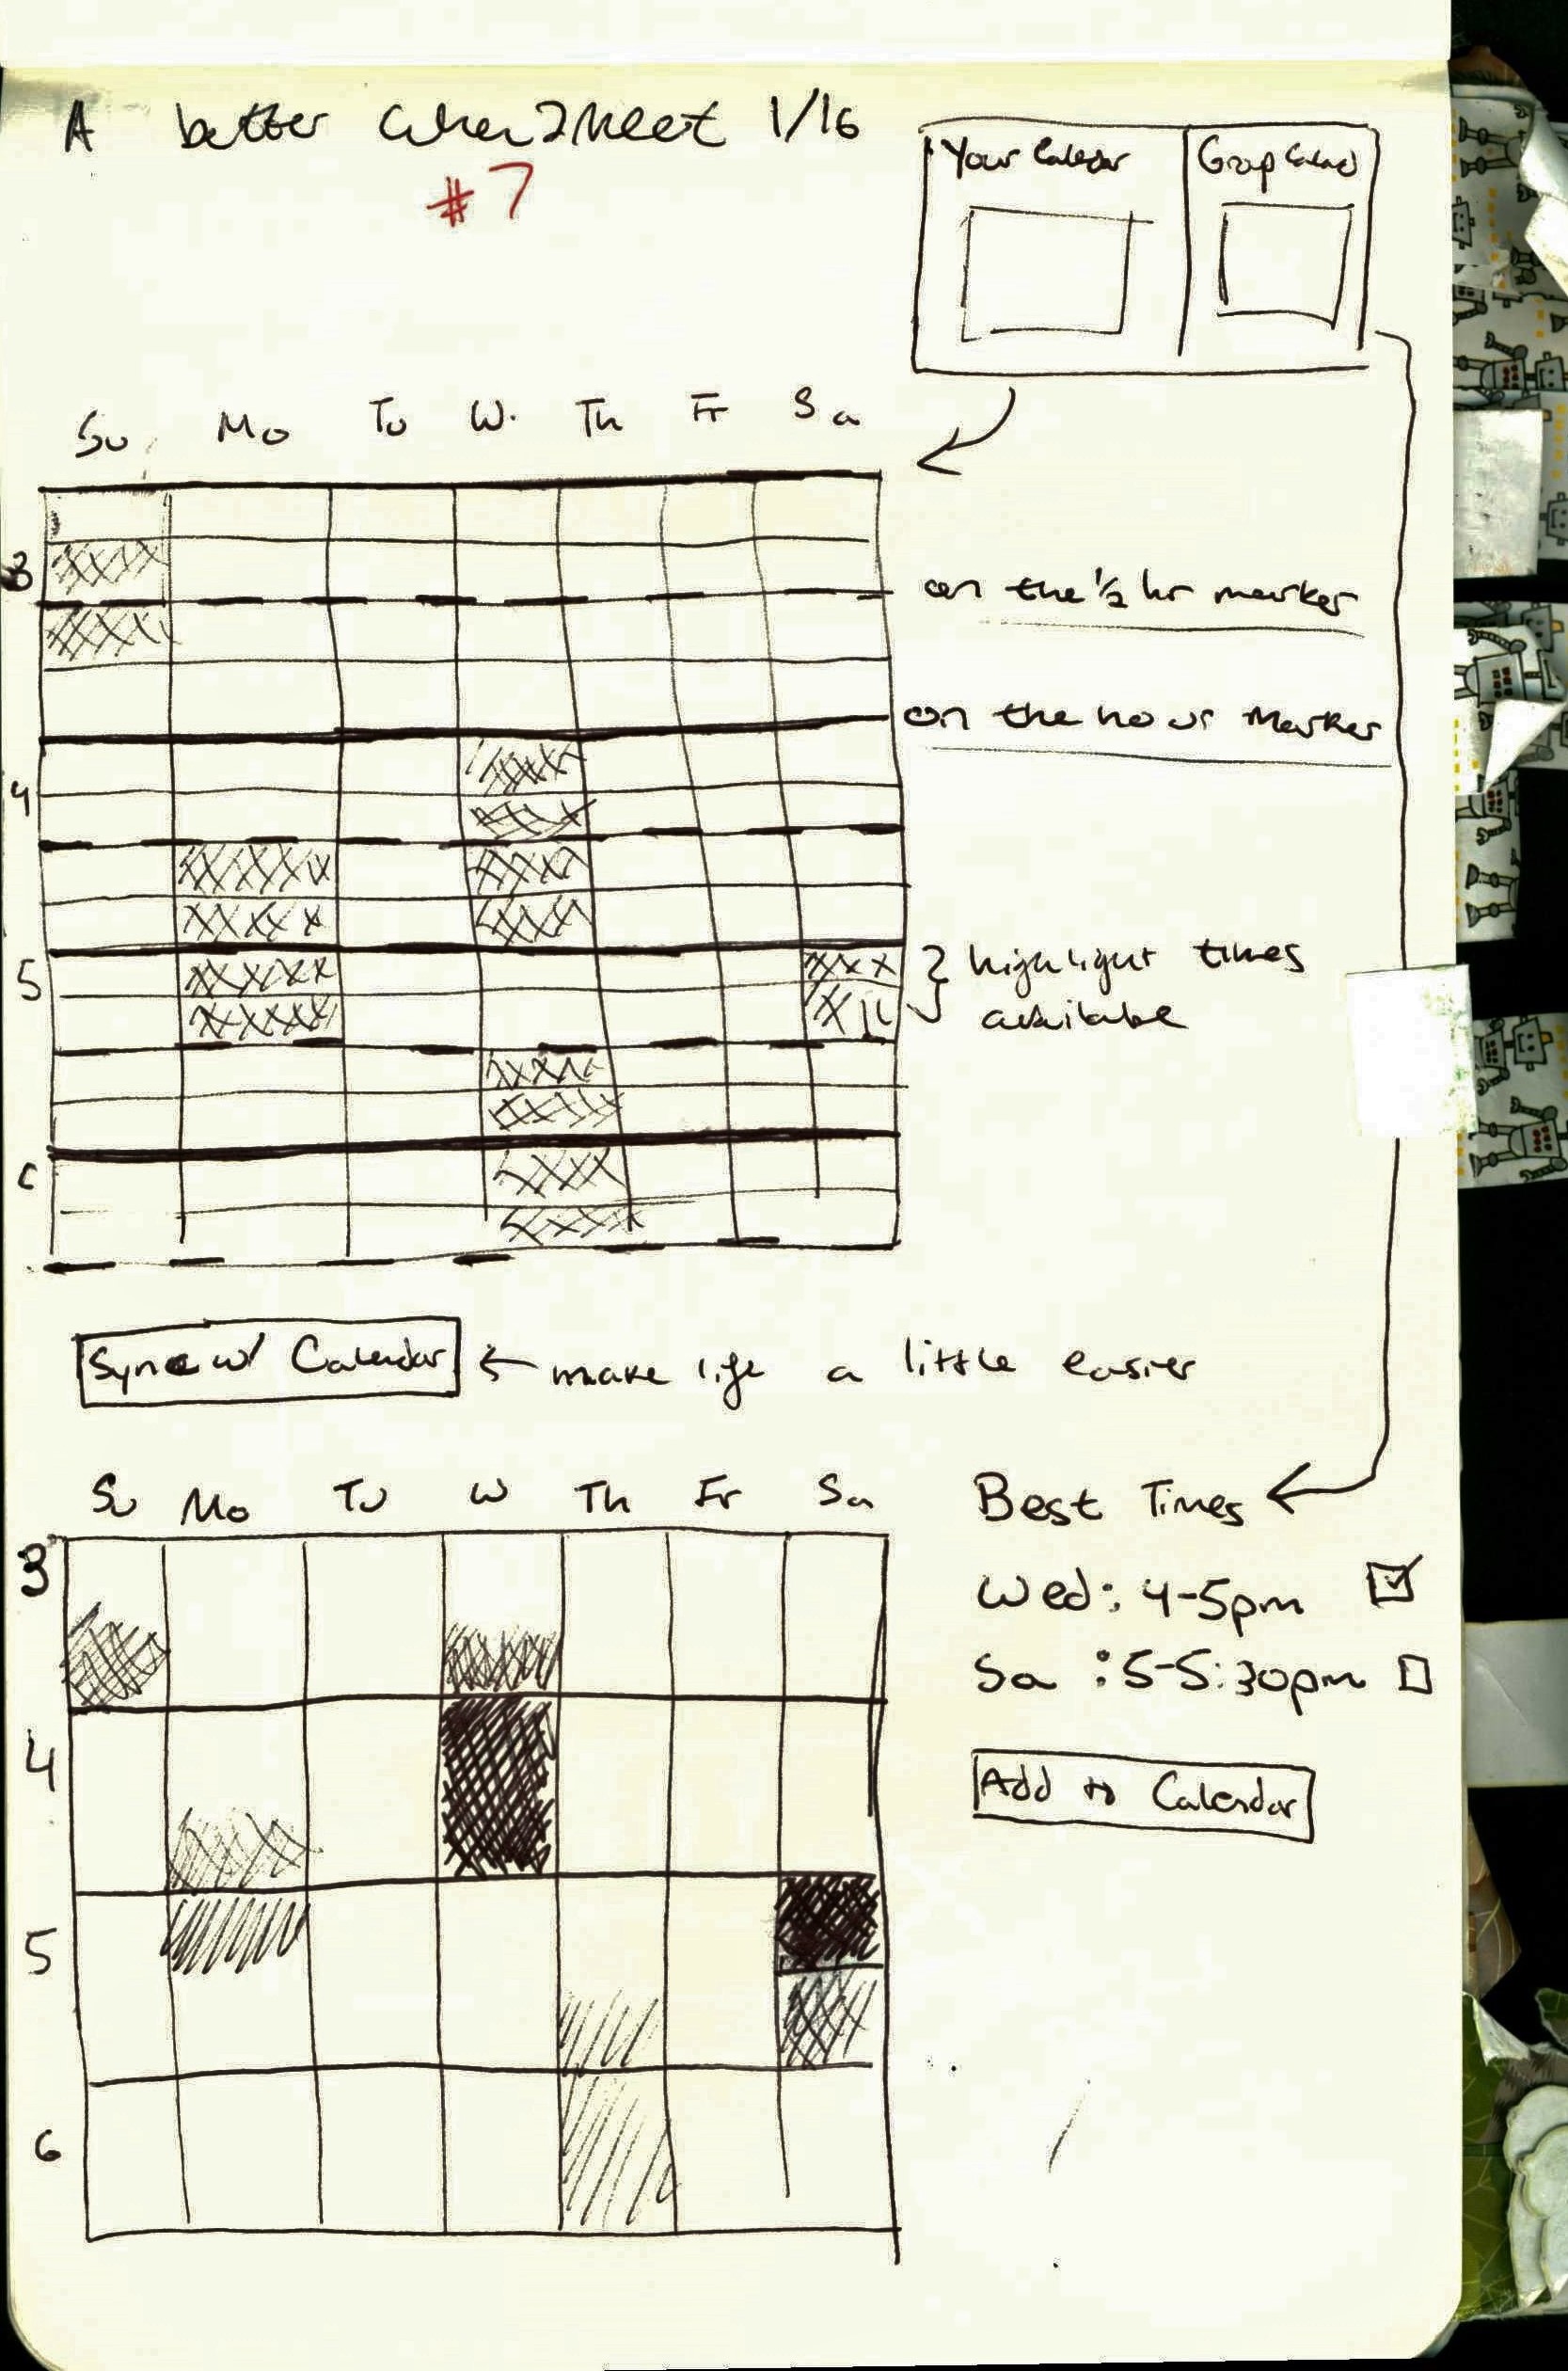 A better When2Meet 1/16
#7
Your Calendar
Group Calend
Su Mo Tu W. Th Fr Sa
3
on the ½ hr marker
on the hour marker
4
5
highlight times
available
6
Sync w/ Calendar ← make life a little easier
Su Mo Tu W Th Fr Sa
Best Times
3
Wed: 4-5pm
Sa : 5-5:30pm
4
Add to Calendar
5
6